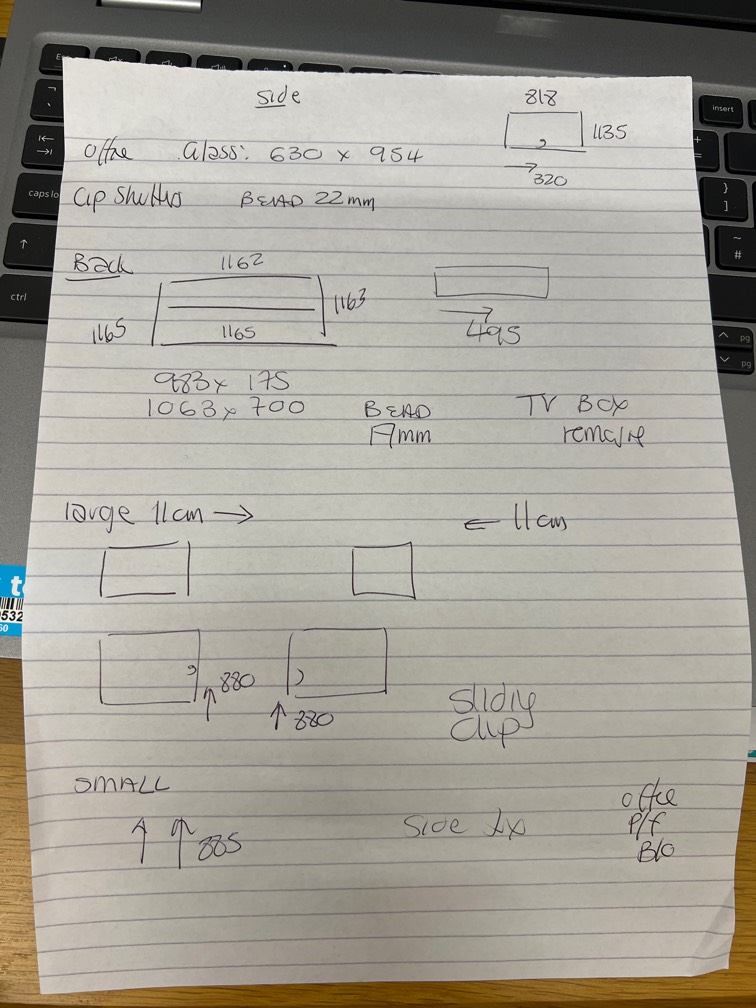 side
818
1135
320
office Glass: 630 x 954
Clip Shutters BEAD 22mm
Back
1162
1163
1165
1165
495
983 x 175
1063 x 700
BEAD
mm
TV BOX
remove
large 11cm →
← 11cm
↑ 880
↑ 880
Sliding
Clip
SMALL
↑ ↑ 885
Side
office
P/f
B/O
insert
caps lo
ctrl
pg
pg